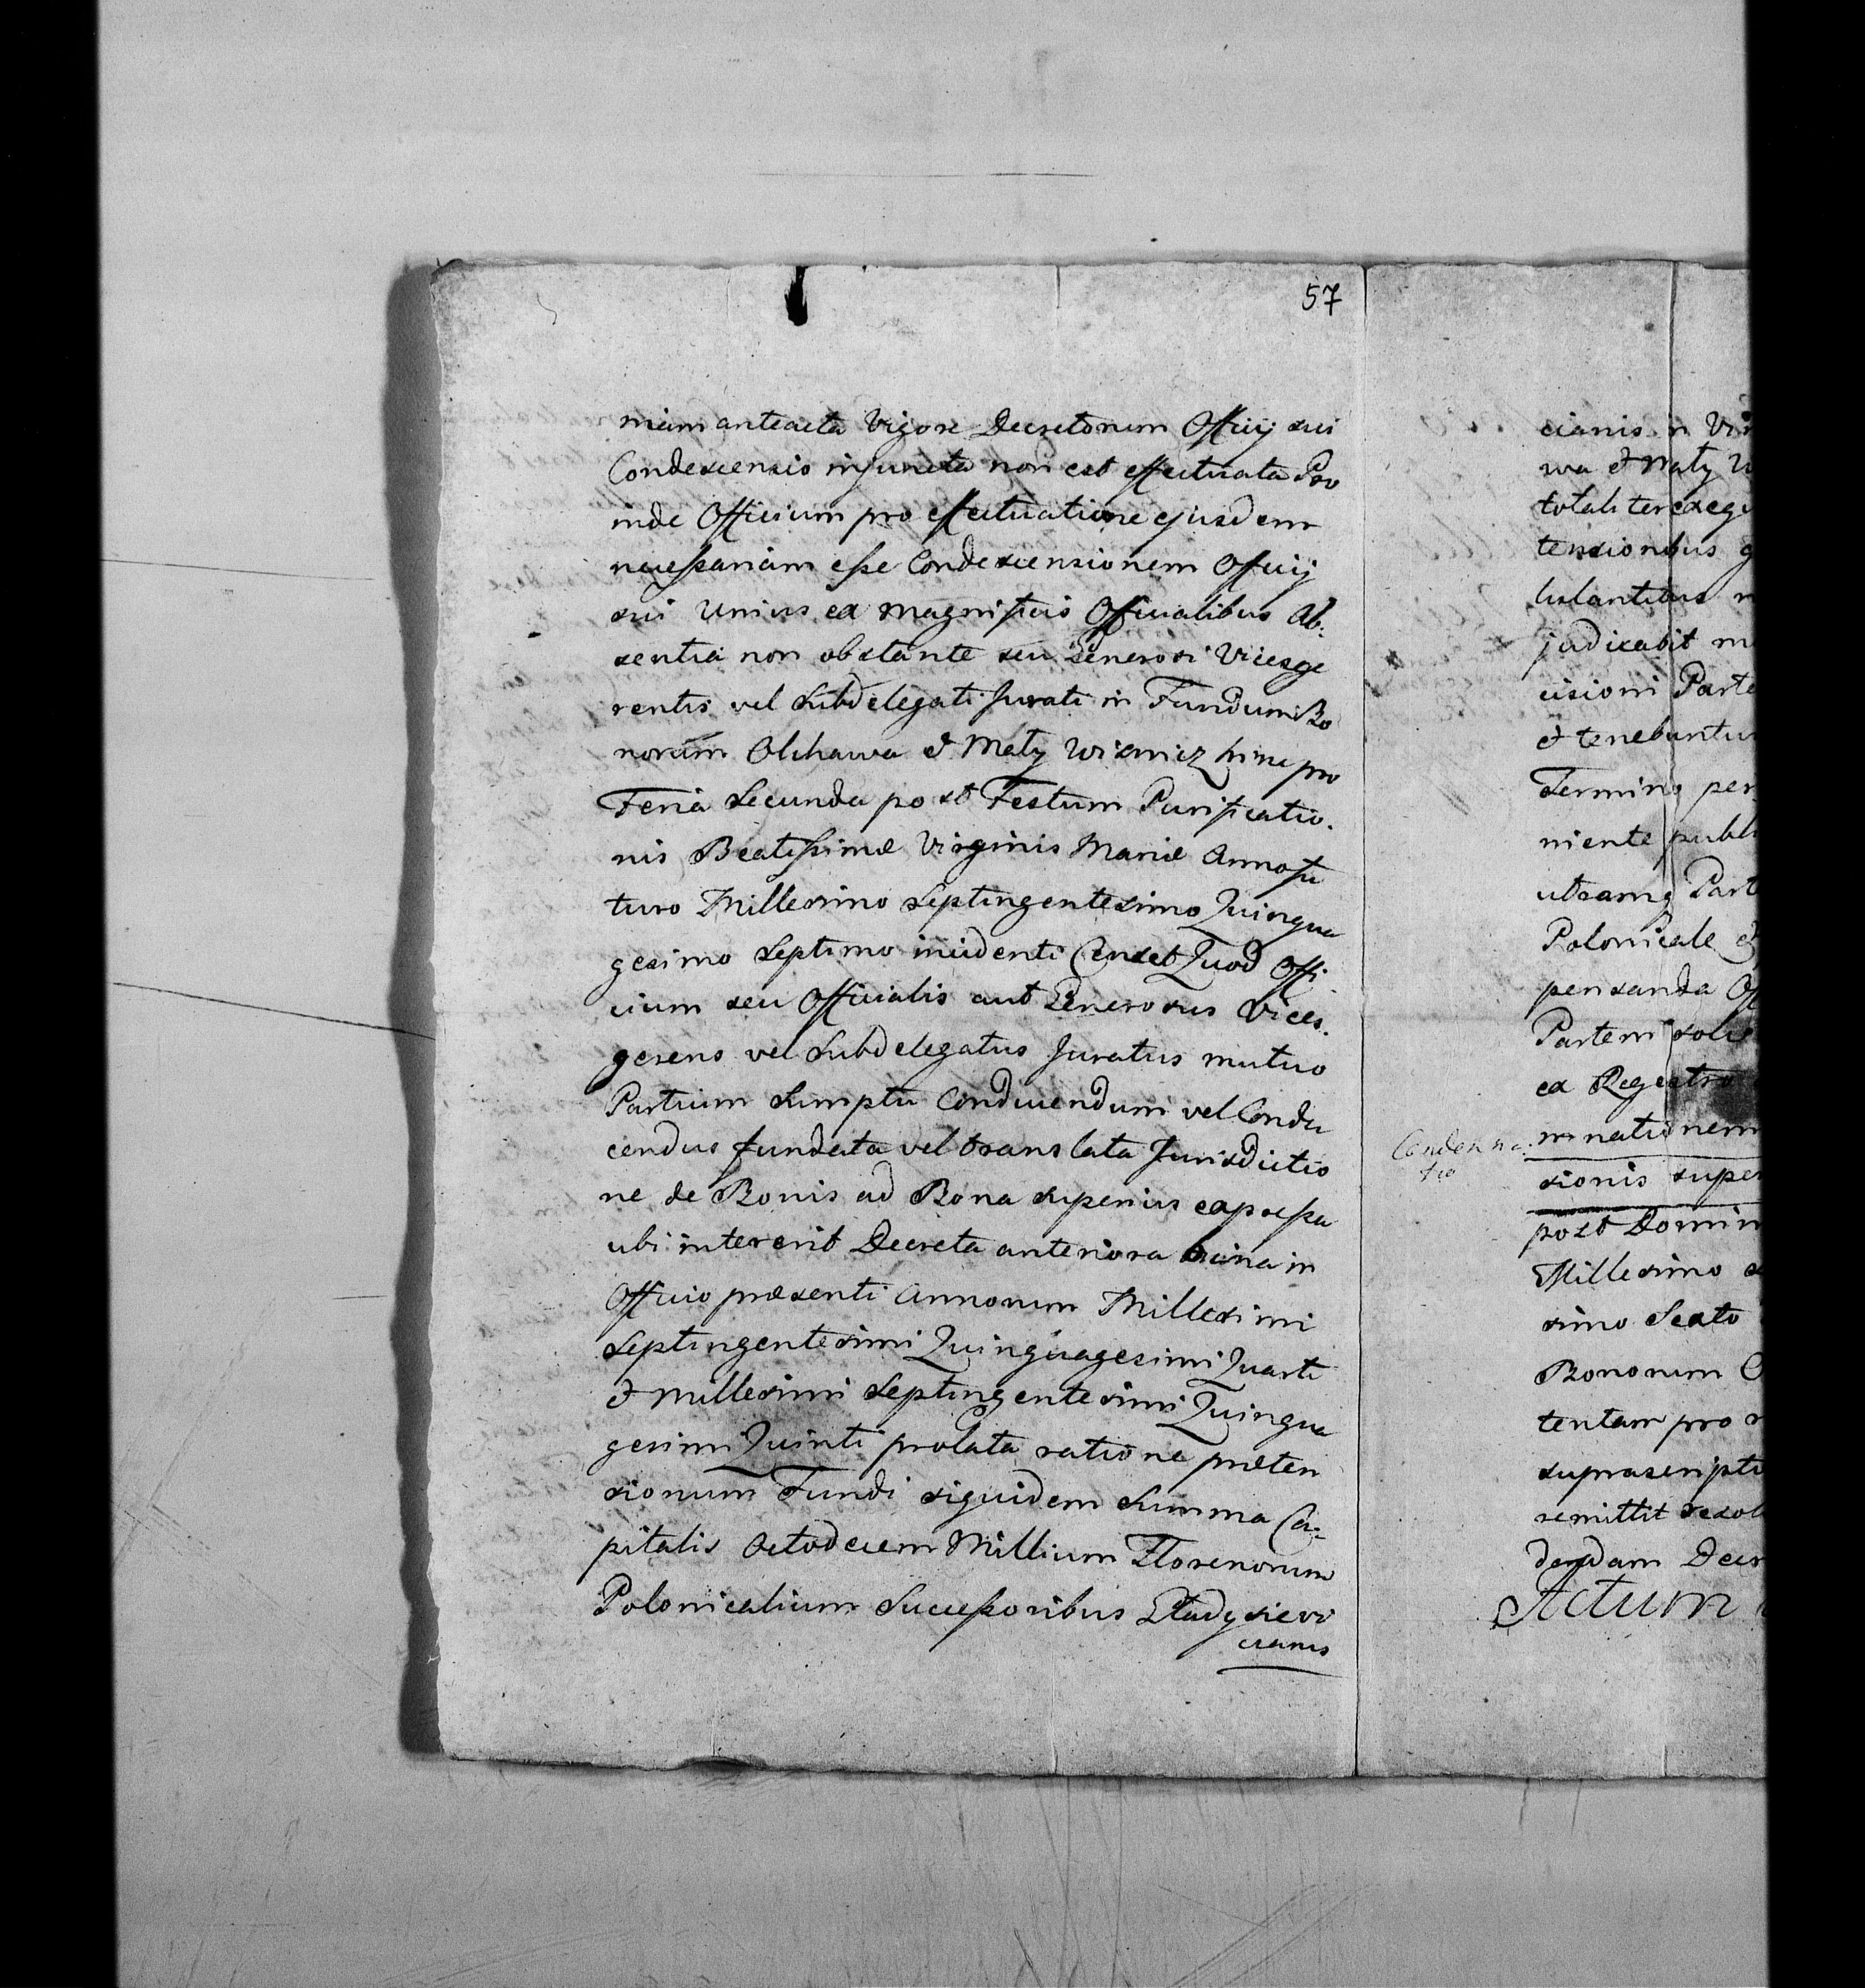 57
niam anteacta Vigore Decretorum Officij sui
Condescensio injuncta non est effectuata Pro
inde Officium pro effectuatione ejusdem
necessariam esse Condescensionem Officij
sui Unius ex Magnificis Officialibus Ab:
sentia non obstante seu Generosi Vicesge
rentis vel Subdelegati Jurati in Fundum Bo
norum Olchawa et Mały Wisnicz hinc pro
Feria Secunda post Festum Purificatio.
nis Beatissimæ Virginis Mariæ Anno fu
turo Millesimo Septingentesimo Quinqua
gesimo Septimo incidenti Censet Quod Offi
cium seu Officialis aut Generosus Vices.
gerens vel Subdelegatus Juratus mutuo
Partium Sumptu Conducendum vel Condu
cendus fundata vel translata Jurisdictio
ne de Bonis ad Bona superius expressa
ubi intererit Decreta anteriora bina in
Officio præsenti Annorum Millesimi
Septingentesimi Quinquagesimi Quarti
et Millesimi Septingentesimi Quinqua
gesimi Quinti prolata ratione præten
sionum Fundi siquidem Summa Ca=
pitalis Octodecem Millium Florenorum
Polonicalium Successoribus Gładysievi
cianis
cianis in
wa et Mały
totaliter
tensionibus
judicabit
cisioni
et tenebuntur
Termino
niente
utramq
Polonicale et
pensanda
Partem
ex Registro
Condemna.
tio
mnationem
sionis
post
Millesimo
simo Sexto
Bonorum
tentam pro
remittit
dendam
Actum